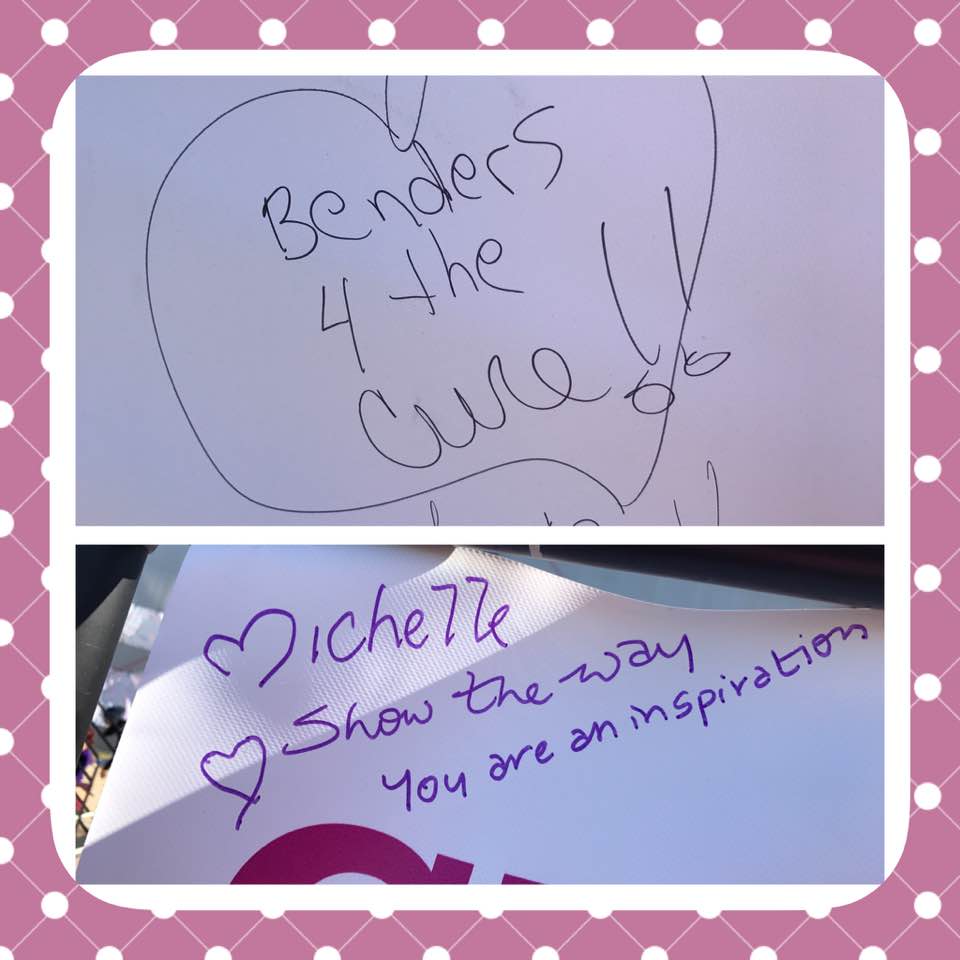 Benders
4 the
Cure!!
Michelle
Show the way
you are an inspiration